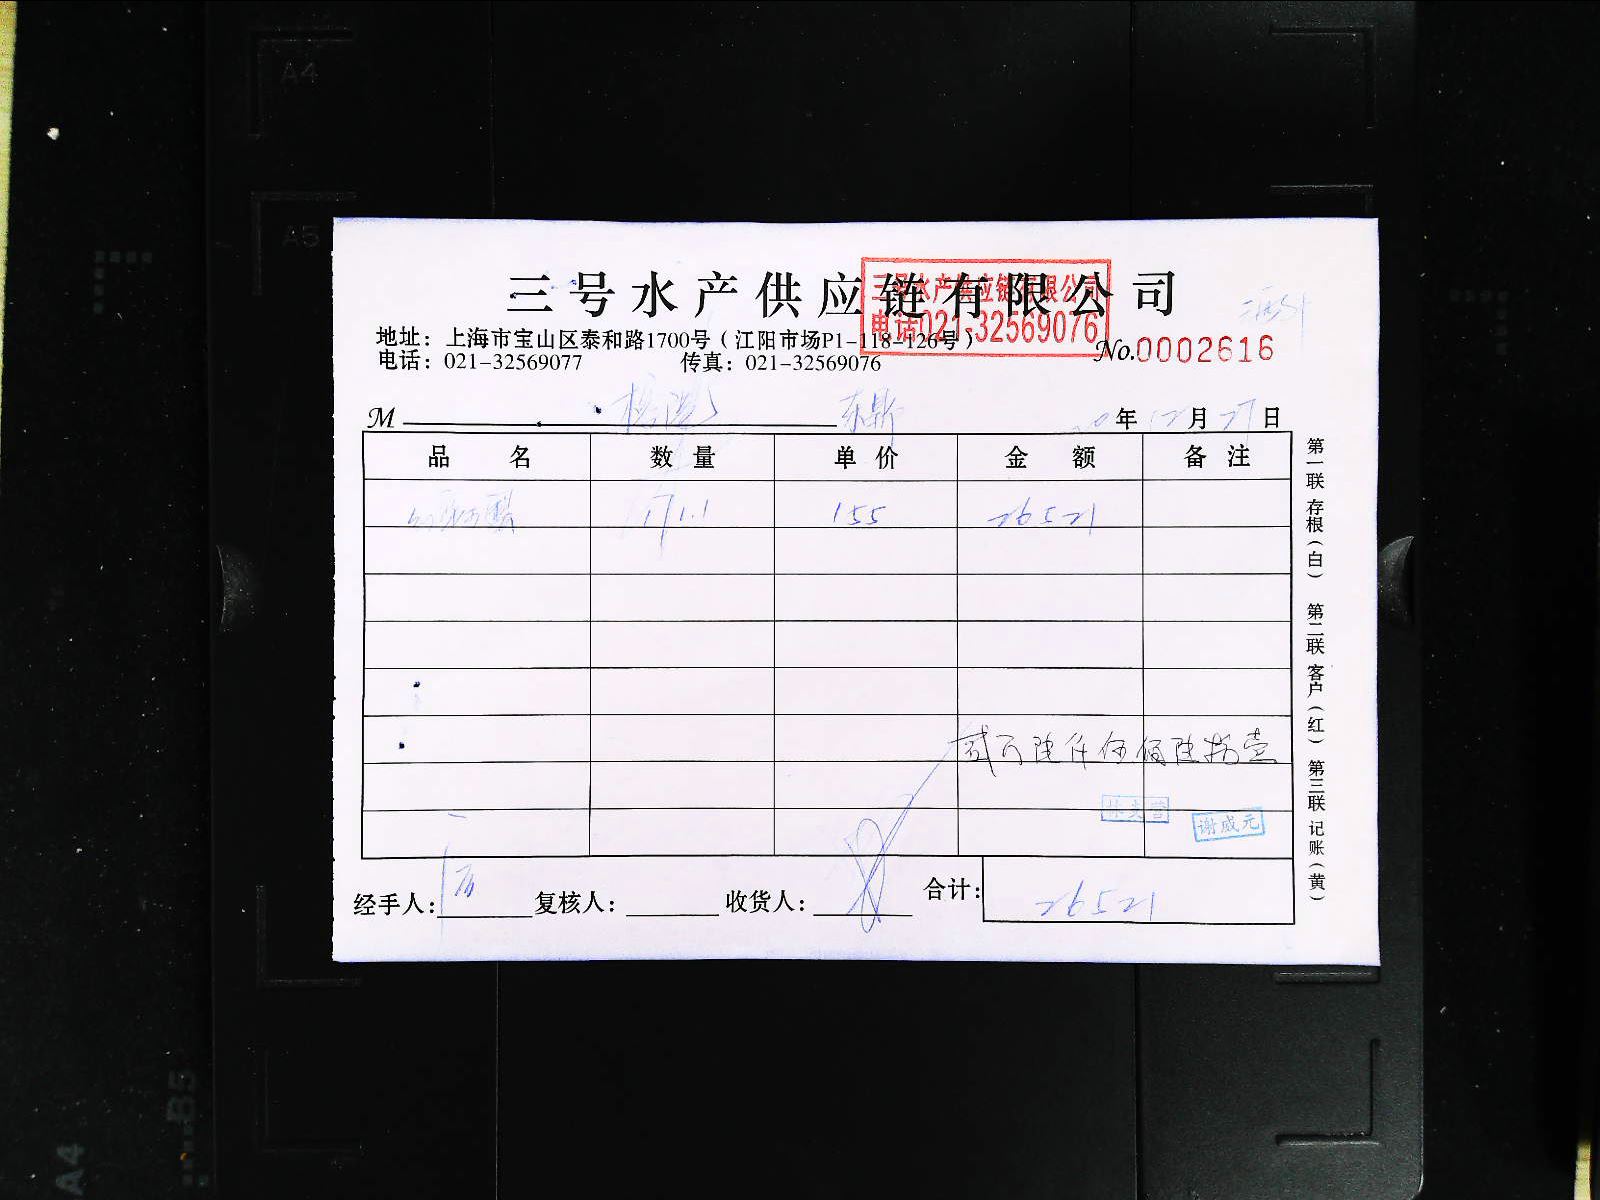 A4
A5
三号水产供应链有限公司
三号水产供应链有限公司
电话021-32569076
地址：上海市宝山区泰和路1700号（江阳市场P1-118-126号）
电话：021-32569077 传真：021-32569076
No.0002616
M 东鼎 20年12月27日
品名 数量 单价 金额 备注
171.1 155 26521
贰万陆仟伍佰陆拾壹
谢成元
经手人： 复核人： 收货人： 合计： 26521
第一联 存根（白） 第二联 客户（红） 第三联 记账（黄）
B5
A4